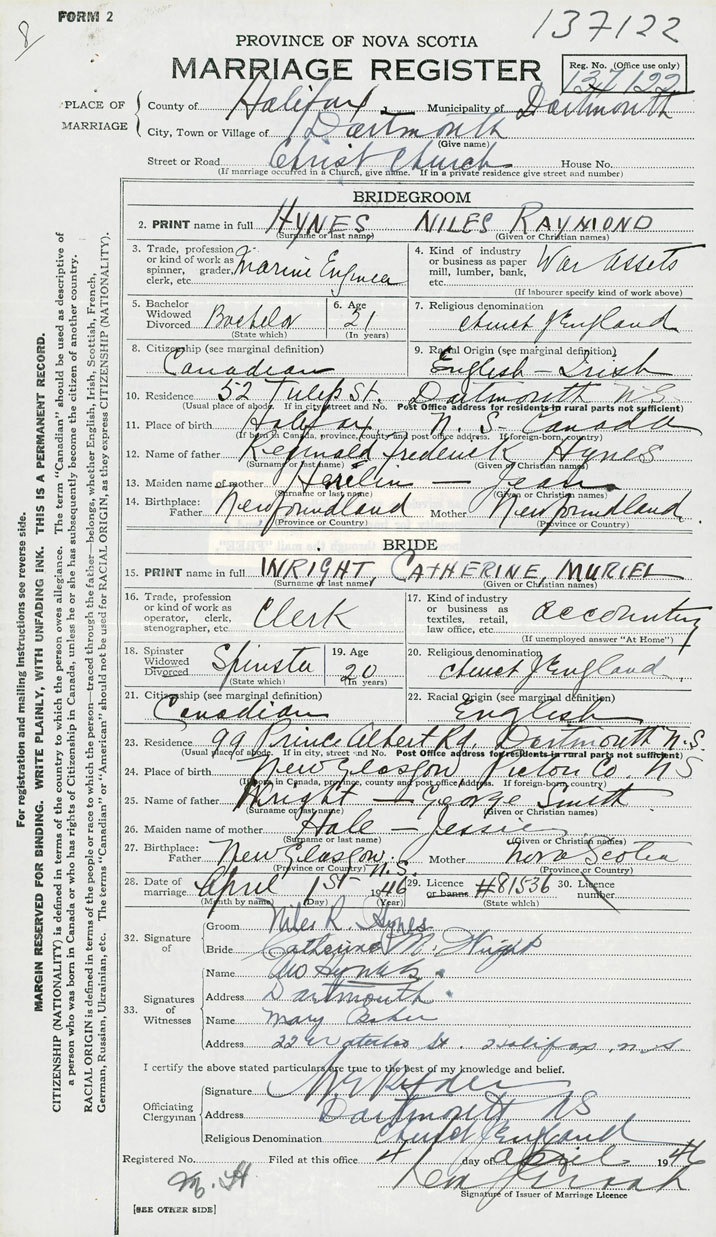 8
FORM 2
137122
PROVINCE OF NOVA SCOTIA
MARRIAGE REGISTER
Reg. No. (Office use only)
137122
PLACE OF MARRIAGE
County of Halifax, Municipality of Dartmouth
City, Town or Village of Dartmouth
(Give name)
Street or Road Christ Church House No.
(If marriage occurred in a Church, give name. If in a private residence give street and number)
BRIDEGROOM
2. PRINT name in full HYNES NILES RAYMOND
(Surname or last name) (Given or Christian names)
3. Trade, profession or kind of work as spinner, grader, clerk, etc. Marine Engineer
4. Kind of industry or business as paper mill, lumber, bank, etc. War Assets
(If labourer specify kind of work above)
5. Bachelor Widowed Divorced Bachelor
(State which)
6. Age 21
(In years)
7. Religious denomination Church of England
8. Citizenship (see marginal definition) Canadian
9. Racial Origin (see marginal definition) English - Irish
10. Residence 52 Tulip St. Dartmouth N.S.
(Usual place of abode. If in city, street and No. Post Office address for residents in rural parts not sufficient)
11. Place of birth Halifax, N.S. - Canada
(If born in Canada, province, county and post office address. If foreign-born, country)
12. Name of father Reginald Frederick Hynes
(Surname or last name) (Given or Christian names)
13. Maiden name of mother — Jean
(Surname or last name) (Given or Christian names)
14. Birthplace: Father Newfoundland Mother Newfoundland
(Province or Country) (Province or Country)
BRIDE
15. PRINT name in full WRIGHT, CATHERINE, MURIEL
(Surname or last name) (Given or Christian names)
16. Trade, profession or kind of work as operator, clerk, stenographer, etc. Clerk
17. Kind of industry or business as textiles, retail, law office, etc. accounting
(If unemployed answer "At Home")
18. Spinster Widowed Divorced Spinster
(State which)
19. Age 20
(In years)
20. Religious denomination Church of England
21. Citizenship (see marginal definition) Canadian
22. Racial Origin (see marginal definition) English
23. Residence 99 Prince Albert Rd. Dartmouth N.S.
(Usual place of abode. If in city, street and No. Post Office address for residents in rural parts not sufficient)
24. Place of birth New Glasgow Pictou Co. NS
(If born in Canada, province, county and post office address. If foreign-born, country)
25. Name of father Wright — George Smith
(Surname or last name) (Given or Christian names)
26. Maiden name of mother Hale — Jessie
(Surname or last name) (Given or Christian names)
27. Birthplace: Father New Glasgow N.S. Mother Nova Scotia
(Province or Country) (Province or Country)
28. Date of marriage April 1st 1946
(Month by name) (Day) (Year)
29. Licence or banns #81536
(State which)
30. Licence number
32. Signature of
Groom Niles R. Hynes
Bride Catherine M. Wright
33. Signatures of Witnesses
Name
Address Dartmouth.
Name Mary
Address 22 Waterloo St. Halifax, N.S
I certify the above stated particulars are true to the best of my knowledge and belief.
Officiating Clergyman
Signature
Address Dartmouth NS
Religious Denomination Church of England
Registered No. Filed at this office 4 day of April 1946
Signature of Issuer of Marriage Licence
[SEE OTHER SIDE]
For registration and mailing instructions see reverse side.
MARGIN RESERVED FOR BINDING. WRITE PLAINLY, WITH UNFADING INK. THIS IS A PERMANENT RECORD.
CITIZENSHIP (NATIONALITY) is defined in terms of the country to which the person owes allegiance. The term "Canadian" should be used as descriptive of
a person who was born in Canada or who has rights of Citizenship in Canada, unless he or she has subsequently become the citizen of another country.
RACIAL ORIGIN is defined in terms of the people or race to which the person—traced through the father—belongs, whether English, Irish, Scottish, French,
German, Russian, Ukrainian, etc. The terms "Canadian" or "American" should not be used for RACIAL ORIGIN, as they express CITIZENSHIP (NATIONALITY).